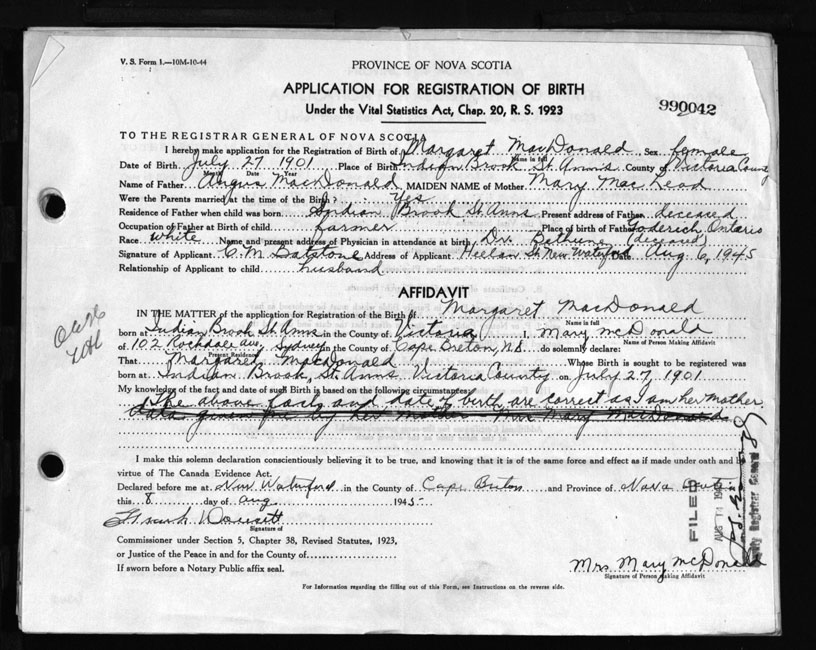 V. S. Form 1.—10M-10-44
PROVINCE OF NOVA SCOTIA
APPLICATION FOR REGISTRATION OF BIRTH
Under the Vital Statistics Act, Chap. 20, R. S. 1923
990042
TO THE REGISTRAR GENERAL OF NOVA SCOTIA
I hereby make application for the Registration of Birth of Margaret MacDonald, Sex female
Name in full
Date of Birth July 27 1901 Place of Birth Indian Brook St. Anns County of Victoria County
Month
Name of Father Angus MacDonald MAIDEN NAME of Mother Mary MacLeod
Were the Parents married at the time of the Birth Yes
Residence of Father when child was born Indian Brook St Anns Present address of Father deceased
Occupation of Father at Birth of child farmer Place of birth of Father Goderich Ontario
Race white Name and present address of Physician in attendance at birth Dr. Bethune (deceased)
Signature of Applicant C. M. Batstone Address of Applicant St New Waterford Date Aug 6, 1945
Relationship of Applicant to child husband
AFFIDAVIT
IN THE MATTER of the application for Registration of the Birth of Margaret MacDonald
Name in full
born at Indian Brook St. Anns in the County of Victoria I, Mary McDonald
Name of Person Making Affidavit
of 102 Rockdale Ave., Sydney in the County of Cape Breton, N.S. do solemnly declare:
Present Residence
That Margaret MacDonald Whose Birth is sought to be registered was
born at Indian Brook, St. Anns Victoria County on July 27, 1901
My knowledge of the fact and date of such Birth is based on the following circumstances:
The above facts and date of birth are correct as I am her mother.
data given me by her mother Mrs Mary MacDonald
I make this solemn declaration conscientiously believing it to be true, and knowing that it is of the same force and effect as if made under oath and in
virtue of The Canada Evidence Act.
Declared before me at New Waterford in the County of Cape Breton and Province of Nova Scotia
this 8 day of Aug 1945
Signature of
Commissioner under Section 5, Chapter 38, Revised Statutes, 1923,
or Justice of the Peace in and for the County of
If sworn before a Notary Public affix seal.
Mrs Mary McDonald
Signature of Person Making Affidavit
For Information regarding the filling out of this Form, see Instructions on the reverse side.
FILED
AUG 14
Deputy Registrar General